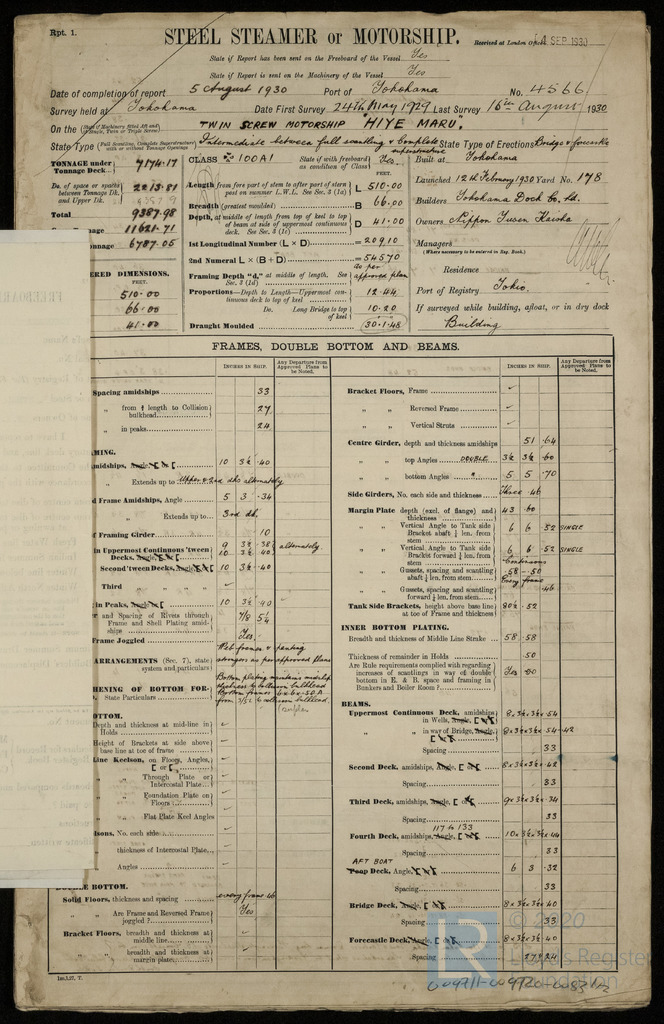 Rpt. 1.
STEEL STEAMER OR MOTORSHIP.
Received at London Office 4 SEP 1930
State if Report has been sent on the Freeboard of the Vessel Yes
State if Report is sent on the Machinery of the Vessel Yes
Date of completion of report 5 August 1930 Port of Yokohama No. 4566
Survey held at Yokohama Date First Survey 24th May 1929 Last Survey 16th August 1930
On the TWIN SCREW MOTORSHIP "HIYE MARU."
State Type Intermediate between full scantling & complete superstructure State Type of Erections Bridge & forecastle
TONNAGE under Tonnage Deck... 7174.17
Do. of space or spaces between Tonnage Dk. and Upper Dk. 2213.81
Total 9387.98
Tonnage 11621.71
Tonnage 6787.05
ERED DIMENSIONS.
FEET.
510.00
66.00
41.00
CLASS 100A1 State if with freeboard as condition of Class Yes
FEET.
Length from fore part of stem to after part of stern post on summer L.W.L. See Sec. 3 (1a) L 510.00
Breadth (greatest moulded) B 66.00
Depth, at middle of length from top of keel to top of beam at side of uppermost continuous deck. See Sec. 3 (1c) D 41.00
1st Longitudinal Number (L × D) = 20910
2nd Numeral L × (B + D) = 54570
Framing Depth "d," at middle of length. See Sec. 3 (1d) as per approved plan
Proportions—Depth to Length—Uppermost continuous deck to top of keel 12.44
Do. Long Bridge to top of keel 10.20
Draught Moulded 30.1.48
Built at Yokohama
Launched 12th February 1930 Yard No. 178
Builders Yokohama Dock Co. Ltd.
Owners Nippon Yusen Kaisha
Managers
(Where necessary to be entered in Reg. Book.)
Residence
Port of Registry Tokio.
If surveyed while building, afloat, or in dry dock
Building
FRAMES, DOUBLE BOTTOM AND BEAMS.
INCHES IN SHIP.
Any Departure from Approved Plans to be Noted.
Spacing amidships 33
" from ⅕ length to Collision bulkhead 27
" in peaks 24
MING.
midships, Angle, [ or [ 10 3½ .40
Extends up to Upper & 2nd dks alternately
d Frame Amidships, Angle 5 3 .34
Extends up to 3rd dk.
f Framing Girder 10
in Uppermost Continuous 'tween Decks, Angle, 9 3½ .38 10 3½ .40 alternately
Second 'tween Decks, Angle, 10 3½ .40
Third " "
in Peaks, Angle, 10 3½ .40
r and Spacing of Rivets through Frame and Shell Plating amidships 7/8 5¼
Frame Joggled Yes.
ARRANGEMENTS (Sec. 7), state system and particulars Web frames & panting stringers as per approved plans
HENING OF BOTTOM FOR-
State Particulars Bottom plating maintains midship thickness to collision bulkhead
OTTOM.
Depth and thickness at mid-line in Holds
Height of Brackets at side above base line at toe of frame
Line Keelson, on Floors, Angles, [ or [
" Through Plate or Intercostal Plate
" Foundation Plate on Floors
" Flat Plate Keel Angles
sons, No. each side
thickness of Intercostal Plate
Angles
DOUBLE BOTTOM.
Solid Floors, thickness and spacing every frame .46
" Are Frame and Reversed Frame joggled? Yes
Bracket Floors, breadth and thickness at middle line
" breadth and thickness at margin plate
Bracket Floors, Frame
" " Reversed Frame
" " Vertical Struts
Centre Girder, depth and thickness amidships 51 .64
" top Angles DOUBLE 3½ 3½ .60
" bottom Angles " 5 5 .70
Side Girders, No. each side and thickness Three .46
Margin Plate depth (excl. of flange) and thickness 43 .60
" Vertical Angle to Tank side Bracket abaft ¼ len. from stem 6 6 .52 SINGLE
" Vertical Angle to Tank side Bracket forward ¼ len. from stem 6 6 .52 SINGLE
" Gussets, spacing and scantling abaft ¼ len. from stem Continuous .58 - .50
" Gussets, spacing and scantling forward ¼ len. from stem Every frame .46
Tank Side Brackets, height above base line at toe of Frame and thickness 80½ .52
INNER BOTTOM PLATING.
Breadth and thickness of Middle Line Strake 58 .58
Thickness of remainder in Holds .50
Are Rule requirements complied with regarding increases of scantlings in way of double bottom in E. & B. space and framing in Bunkers and Boiler Room? Yes
BEAMS.
Uppermost Continuous Deck, amidships in Wells, Angle, 8 × 3½ × 3½ × .54
" in way of Bridge, Angle, 8 × 3½ × 3½ × .54 - .42
Spacing 33
Second Deck, amidships, Angle, 8 × 3½ × 3½ × .42
Spacing 33
Third Deck, amidships, Angle, 9 × 3½ × 3½ × .34
Spacing 33
117 to 133
Fourth Deck, amidships, Angle, 10 × 3½ × 3½ × .44
Spacing 33
AFT BOAT
Poop Deck, Angle, 6 3 .32
Spacing 33
Bridge Deck, Angle, 8 × 3½ × 3½ × .40
Spacing 33
Forecastle Deck, Angle, 8 × 3½ × 3½ × .40
Spacing 27 & 24
LR © 2020
Lloyd's Register
Foundation
009711-009720-0083 1/2